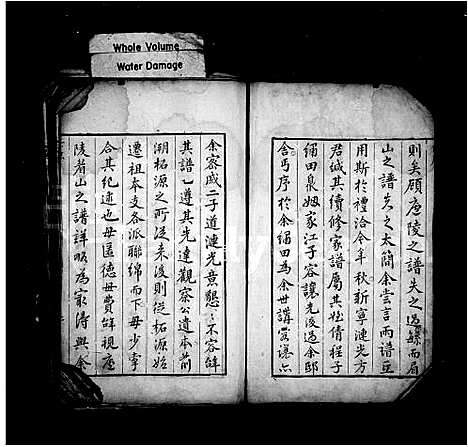 Whole Volume
Water Damage
則矣顧唐陵之譜失之過繇而眉
山之譜失之太簡余嘗言兩譜並
用斯於禮洽今年秋新寧漣光方
君誠其續修家譜屬其姓倩程子
緬田泉姻家江子容讓先後過余邸
舍丐序於余緬田為余世講
余寮戚二子道漣光意懇之不容辭
其譜乙遵其先達觀察公遺本前
溯柘源之所從來後則從柘源始
遷祖本支各派聯綿而下毋少事
合其紀述也毋匿德毋費辭視廬
陵眉山之譜詳略為最得與余